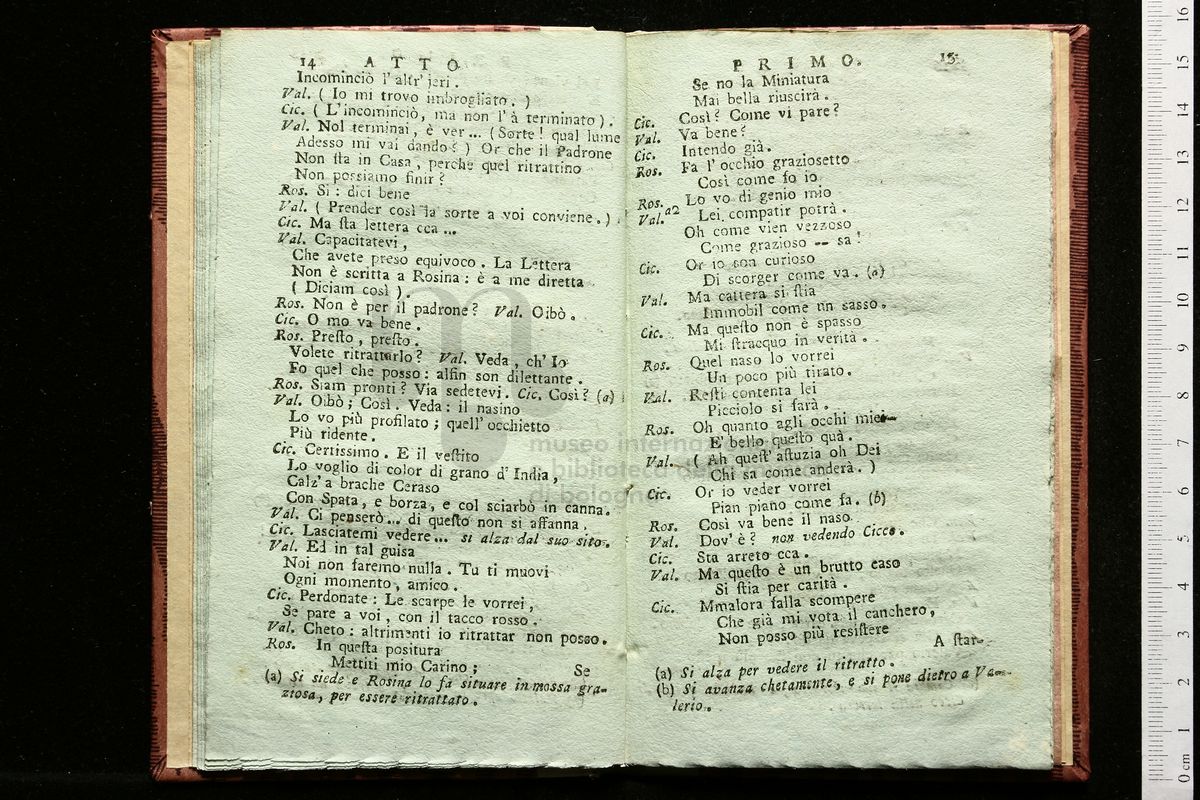 14 ATTO
Incominciò l'altr' jeri.
Val. ( Io mi trovo imbrogliato. )
Cic. ( L'incominciò, ma non l'à terminato ).
Val. Nol terminai, è ver ... ( Sorte! qual lume
Adesso mi vai dando? ) Or che il Padrone
Non sta in Casa, perchè quel ritrattino
Non possiamo finir?
Ros. Si: dici bene
Val. ( Prender così la sorte a voi conviene. )
Cic. Ma sta lettera cca ...
Val. Capacitatevi,
Che avete preso equivoco. La Lettera
Non è scritta a Rosina: è a me diretta
( Diciam così ).
Ros. Non è per il padrone? Val. Oibò.
Cic. O mo va bene.
Ros. Presto, presto.
Volete ritrattarlo? Val. Veda, ch' Io
Fo quel che posso: alfin son dilettante.
Ros. Siam pronti? Via sedetevi. Cic. Così? (a)
Val. Oibò; Così. Veda: il nasino
Lo vo più profilato; quell' occhietto
Più ridente.
Cic. Certissimo. E il vestito
Lo voglio di color di grano d' India,
Calz' a brache Ceraso
Con Spata, e borza, e col sciarbò in canna.
Val. Ci penserò ... di questo non si affanna.
Cic. Lasciatemi vedere ... si alza dal suo sito.
Val. Ed in tal guisa
Noi non faremo nulla. Tu ti muovi
Ogni momento, amico.
Cic. Perdonate: Le scarpe le vorrei,
Se pare a voi, con il tacco rosso.
Val. Cheto: altrimenti io ritrattar non posso.
Ros. In questa positura
Mettiti mio Carino;
Se
(a) Si siede e Rosina lo fa situare in mossa gra-
ziosa, per essere ritrattato.
PRIMO. 15
Se no la Miniatura
Mai bella riuscirà.
Cic. Così? Come vi pare?
Val. Va bene?
Cic. Intendo già.
Ros. Fa l'occhio graziosetto
Così come fo io
Ros. Lo vo di genio mio
Val. a2 Lei compatir potrà.
Oh come vien vezzoso,
Come grazioso -- sa!
Cic. Or io son curioso
Di scorger come va. (a)
Val. Ma cattera si stia
Immobil come un sasso.
Cic. Ma questo non è spasso
Mi stracquo in verità.
Ros. Quel naso lo vorrei
Un poco più tirato.
Val. Resti contenta lei
Picciolo si farà.
Ros. Oh quanto agli occhi miei
E' bello questo quà.
Val. ( Ah quest' astuzia oh Dei
Chi sa come anderà. )
Cic. Or io veder vorrei
Pian piano come fa. (b)
Ros. Così va bene il naso
Val. Dov' è? non vedendo Cicco.
Cic. Sta arreto cca.
Val. Ma questo è un brutto caso
Si stia per carità.
Cic. Mmalora falla scompere
Che già mi vota il canchero,
Non posso più resistere
A star-
(a) Si alza per vedere il ritratto.
(b) Si avanza chetamente, e si pone dietro a Va-
lerio.
museo internazionale
biblioteca della musica
di bologna
0 cm 1 2 3 4 5 6 7 8 9 10 11 12 13 14 15 16